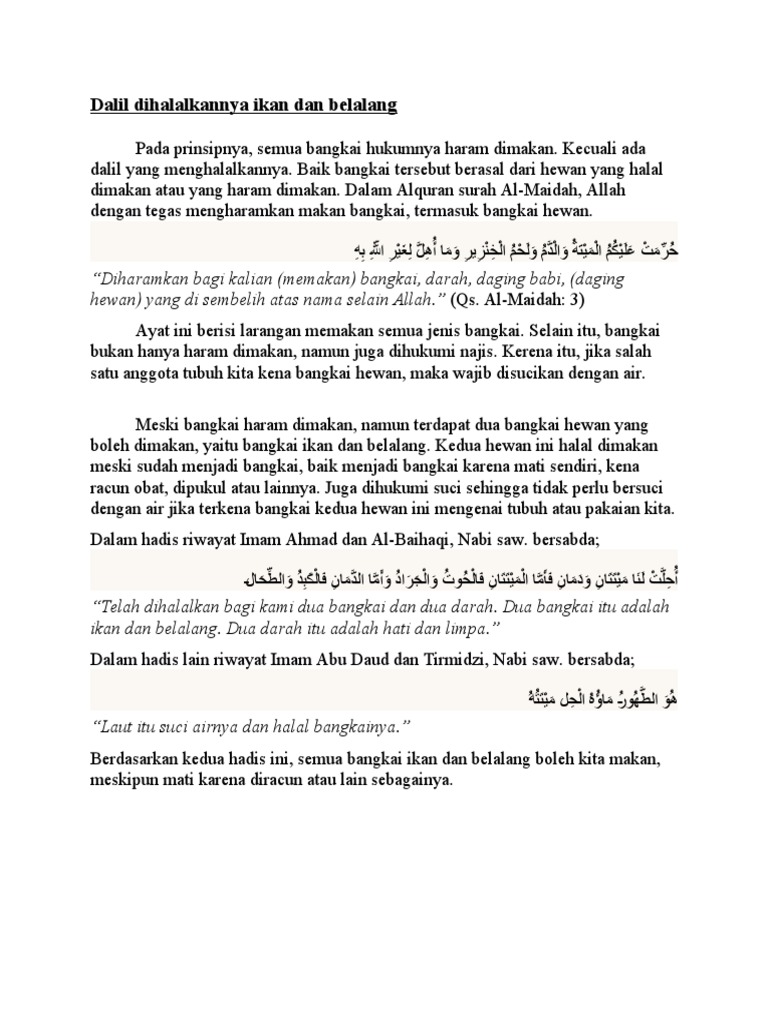 Dalil dihalalkannya ikan dan belalang
Pada prinsipnya, semua bangkai hukumnya haram dimakan. Kecuali ada
dalil yang menghalalkannya. Baik bangkai tersebut berasal dari hewan yang halal
dimakan atau yang haram dimakan. Dalam Alquran surah Al-Maidah, Allah
dengan tegas mengharamkan makan bangkai, termasuk bangkai hewan.
حُرِّمَتْ عَلَيْكُمُ الْمَيْتَةُ وَالْدَّمُ وَلَحْمُ الْخِنْزِيرِ وَمَا أُهِلَّ لِغَيْرِ اللَّهِ بِهِ
“Diharamkan bagi kalian (memakan) bangkai, darah, daging babi, (daging
hewan) yang di sembelih atas nama selain Allah.” (Qs. Al-Maidah: 3)
Ayat ini berisi larangan memakan semua jenis bangkai. Selain itu, bangkai
bukan hanya haram dimakan, namun juga dihukumi najis. Kerena itu, jika salah
satu anggota tubuh kita kena bangkai hewan, maka wajib disucikan dengan air.
Meski bangkai haram dimakan, namun terdapat dua bangkai hewan yang
boleh dimakan, yaitu bangkai ikan dan belalang. Kedua hewan ini halal dimakan
meski sudah menjadi bangkai, baik menjadi bangkai karena mati sendiri, kena
racun obat, dipukul atau lainnya. Juga dihukumi suci sehingga tidak perlu bersuci
dengan air jika terkena bangkai kedua hewan ini mengenai tubuh atau pakaian kita.
Dalam hadis riwayat Imam Ahmad dan Al-Baihaqi, Nabi saw. bersabda;
أُحِلَّتْ لَنَا مَيْتَتَانِ وَدَمَانِ فَأَمَّا الْمَيْتَتَانِ فَالْحُوتُ وَالْجَرَادُ وَأَمَّا الدَّمَانِ فَالْكَبِدُ وَالطِّحَالِ.
“Telah dihalalkan bagi kami dua bangkai dan dua darah. Dua bangkai itu adalah
ikan dan belalang. Dua darah itu adalah hati dan limpa.”
Dalam hadis lain riwayat Imam Abu Daud dan Tirmidzi, Nabi saw. bersabda;
هُوَ الطَّهُورُ مَاؤُهُ الْحِل مَيْتَتُهُ
“Laut itu suci airnya dan halal bangkainya.”
Berdasarkan kedua hadis ini, semua bangkai ikan dan belalang boleh kita makan,
meskipun mati karena diracun atau lain sebagainya.